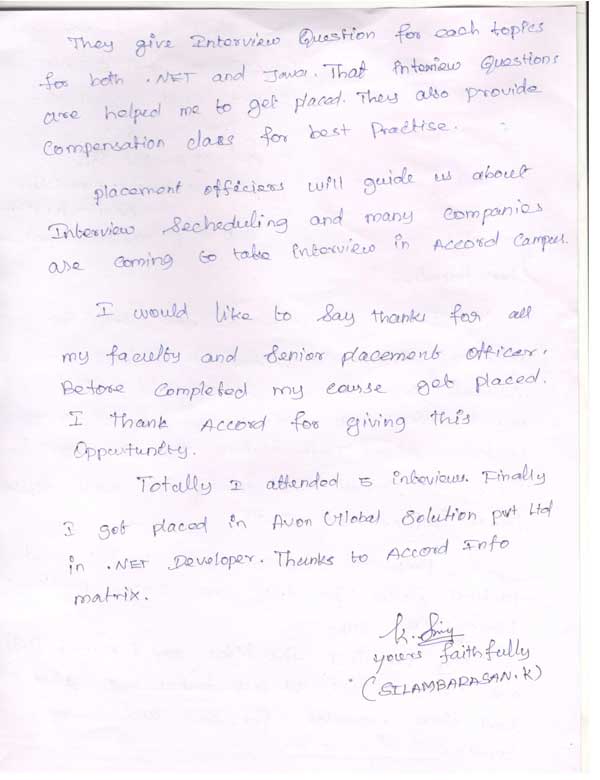 They give Interview Question for each topics
for both .NET and Java. That Interview Questions
are helped me to get placed. They also provide
Compensation class for best Practise.
placement officiers will guide us about
Interview Secheduling and many companies
are coming to take interview in Accord Campus.
I would like to say thanks for all
my faculty and senior placement officer.
Before Completed my course get placed.
I thank Accord for giving this
Oppurtunity.
Totally I attended 5 interviews. Finally
I got placed in Avon Global Solution pvt Ltd
in .NET Developer. Thanks to Accord Info
matrix.
yours faithfully
(SILAMBARASAN.K)